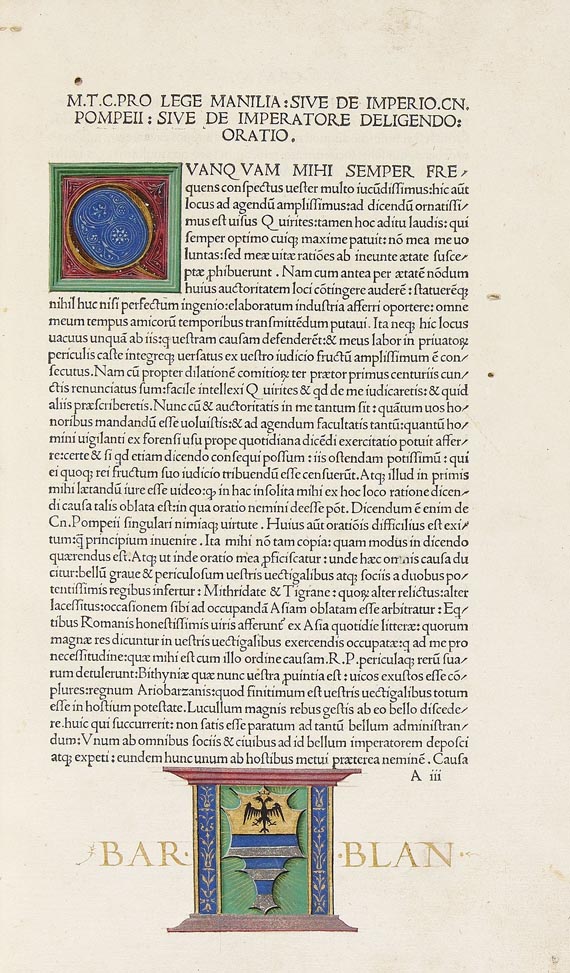 M.T.C.PRO LEGE MANILIA:SIVE DE IMPERIO.CN.
POMPEII: SIVE DE IMPERATORE DELIGENDO:
ORATIO.
QVANQVAM MIHI SEMPER FRE,
quens conspectus uester multo iucūdissimus:hic aūt
locus ad agendū amplissimus:ad dicendū ornatissi,
mus est uisus Quirites:tamen hoc aditu laudis: qui
semper optimo cuiq; maxime patuit: nō mea me uo
luntas:sed meæ uitæ ratiōes ab ineunte ætate susce,
ptæ ꝓhibuerunt. Nam cum antea per ætatē nōdum
huius auctoritatem loci cōtingere auderē: statuerēq;
nihil huc nisi perfectum ingenio:elaboratum industria afferri oportere: omne
meum tempus amicorū temporibus transmittēdum putaui. Ita neq; hic locus
uacuus unquā ab iis:q uestram causam defenderēt:& meus labor in priuatoꝝ
periculis caste integreq; uersatus ex uestro iudicio fructū amplissimum ē con,
secutus.Nam cū propter dilationē comitioꝝ ter prætor primus centuriis cun,
ctis renunciatus sum:facile intellexi Quirites & qd de me iudicaretis: & quid
aliis præscriberetis.Nunc cū & auctoritatis in me tantum sit: quātum uos ho,
noribus mandandū esse uoluistis:& ad agendum facultatis tantū:quantū ho,
mini uigilanti ex forensi usu prope quotidiana dicēdi exercitatio potuit affer,
re:certe & si qd etiam dicendo consequi possum: iis ostendam potissimū: qui
ei quoq; rei fructum suo iudicio tribuendū esse censuerūt.Atq; illud in primis
mihi lætandū iure esse uideo:ꝙ in hac insolita mihi ex hoc loco ratione dicen,
di causa talis oblata est:in qua oratio nemini deesse pōt. Dicendum ē enim de
Cn.Pompeii singulari nimiaq; uirtute. Huius aūt oratiōis difficilius est exi,
tum:q̄ principium inuenire. Ita mihi nō tam copia: quam modus in dicendo
quærendus est.Atq; ut inde oratio mea ꝓficiscatur: unde hæc omnis causa du
citur:bellū graue & periculosum uestris uectigalibus atq; sociis a duobus po,
tentissimis regibus infertur: Mithridate & Tigrane: quoꝝ alter relictus:alter
lacessitus:occasionem sibi ad occupandā Asiam oblatam esse arbitratur: Eq,
tibus Romanis honestissimis uiris afferunt̃ ex Asia quotidie litteræ: quorum
magnæ res dicuntur in uestris uectigalibus exercendis occupatæ:q ad me pro
necessitudine:quæ mihi est cum illo ordine causam.R.P.periculaq; rerū sua,
rum detulerunt:Bithyniæ quæ nunc uestra ꝓuintia est: uicos exustos esse cō,
plures:regnum Ariobarzanis:quod finitimum est uestris uectigalibus totum
esse in hostium potestate.Lucullum magnis rebus gestis ab eo bello discede,
re.huic qui succurrerit: non satis esse paratum ad tantū bellum administran,
dum:Vnum ab omnibus sociis & ciuibus ad id bellum imperatorem deposci
atq; expeti: eundem hunc unum ab hostibus metui præterea neminē. Causa
A iii
BAR· ·BLAN·